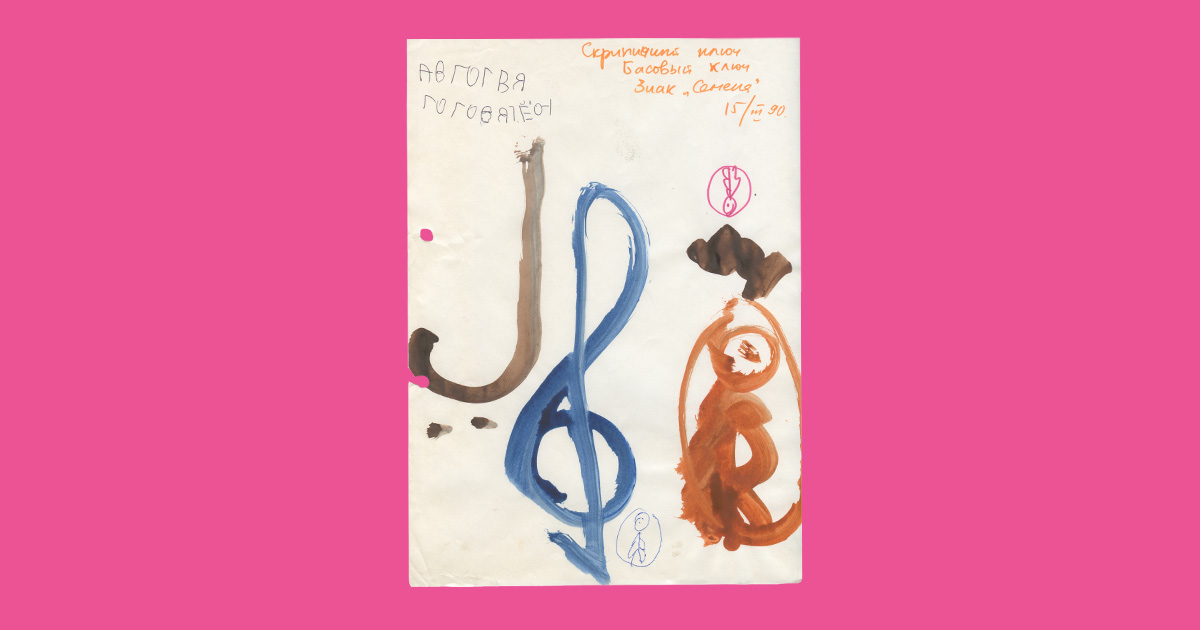 АВГОГВЯ
ГОГОВЯТЁН
Скрипичный ключ
Басовый ключ
Знак „Семена"
15/III 90.